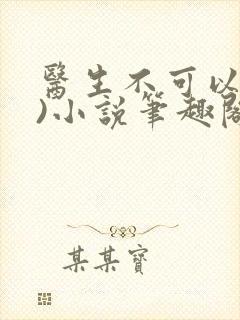 醫生不可以
)小說筆趣閣
某某寶